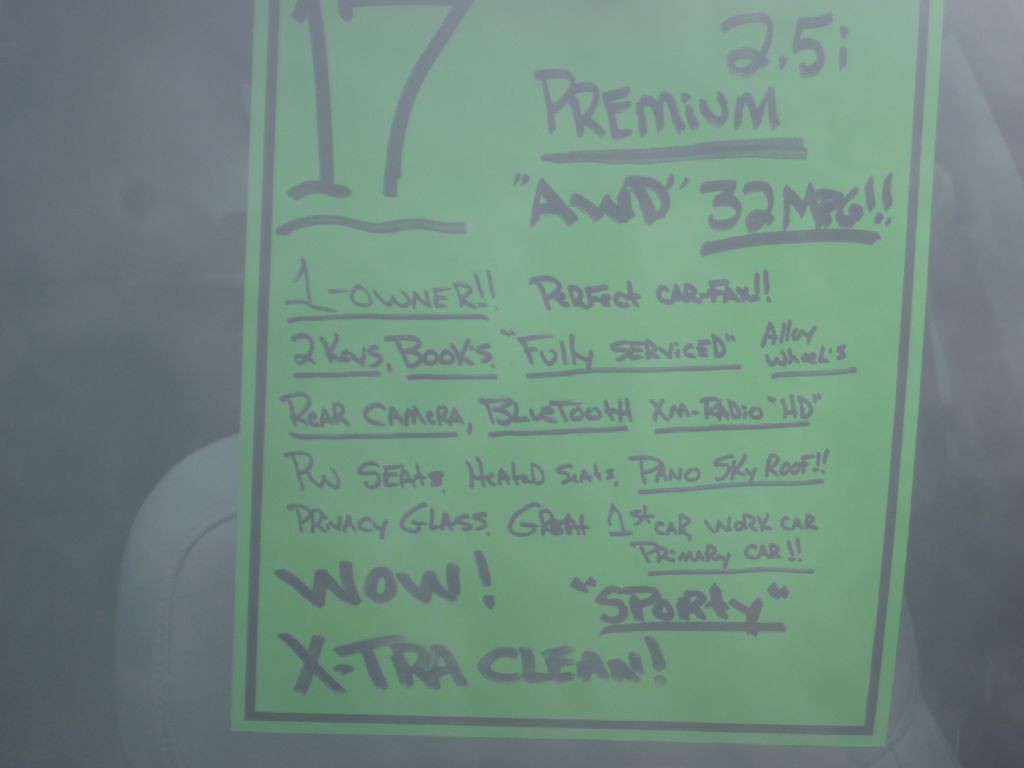 17
2.5i
PREMiUM
"AWD" 32 MPG!!
1-OWNER!! PERFECT CAR-FAX!!
2 Keys, BOOK'S, "Fully SERViCED" Alloy
Wheel's
REAR CAMERA, BLUETOOTH XM-RADiO "HD"
PW SEAtS, HEAtED SEAtS, PANO SKy ROOF!!
PRiVACY GLASS, GREAt 1st CAR, WORK CAR
PRiMARY CAR!!
WOW! "SPORty"
X-TRA CLEAN!